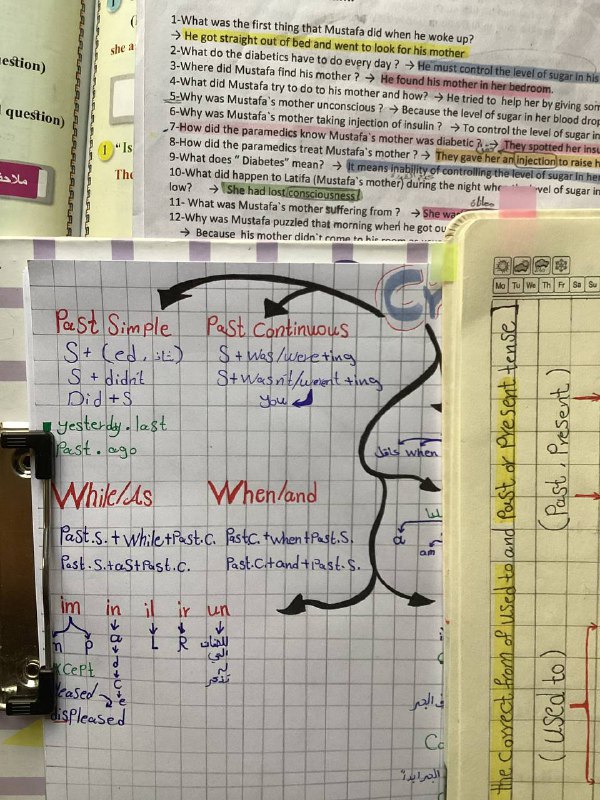 estion)
she a
question)
1 "Is
The
ملاحظ
1-What was the first thing that Mustafa did when he woke up?
→ He got straight out of bed and went to look for his mother
2-What do the diabetics have to do every day ? → He must control the level of sugar in his
3-Where did Mustafa find his mother ? → He found his mother in her bedroom.
4-What did Mustafa try to do to his mother and how? → He tried to help her by giving som
5-Why was Mustafa`s mother unconscious ? → Because the level of sugar in her blood drop
6-Why was Mustafa`s mother taking injection of insulin ? → To control the level of sugar in
7-How did the paramedics know Mustafa`s mother was diabetic ? → They spotted her ins
8-How did the paramedics treat Mustafa`s mother ? → They gave her an injection to raise h
9-What does " Diabetes" mean? → It means inability of controlling the level of sugar In her
10-What did happen to Latifa (Mustafa`s mother) during the night when level of sugar in
low? → She had lost consciousness
11- What was Mustafa`s mother suffering from ? → She was
12-Why was Mustafa puzzled that morning when he got ou
→ Because his mother didn't come to his room
Past Simple
S + (ed , شاذ)
S + didn't
Did + S
yesterday . last
Past . ago
Past Continuous
S + was/were + ing
S + wasn't/weren't + ing
you
While/As
Past.S. + while + Past.C.
Past.S. + as + Past.C.
When/and
Past C. + when + Past.S.
Past.C + and + Past.S.
im in il ir un
n p a L R
d
c
e
xcept
leased
displeased
when
am
Co
Mo Tu We Th Fr Sa Su
the correct from of used to and Past or Present tense]
(Past , Present)
(used to)